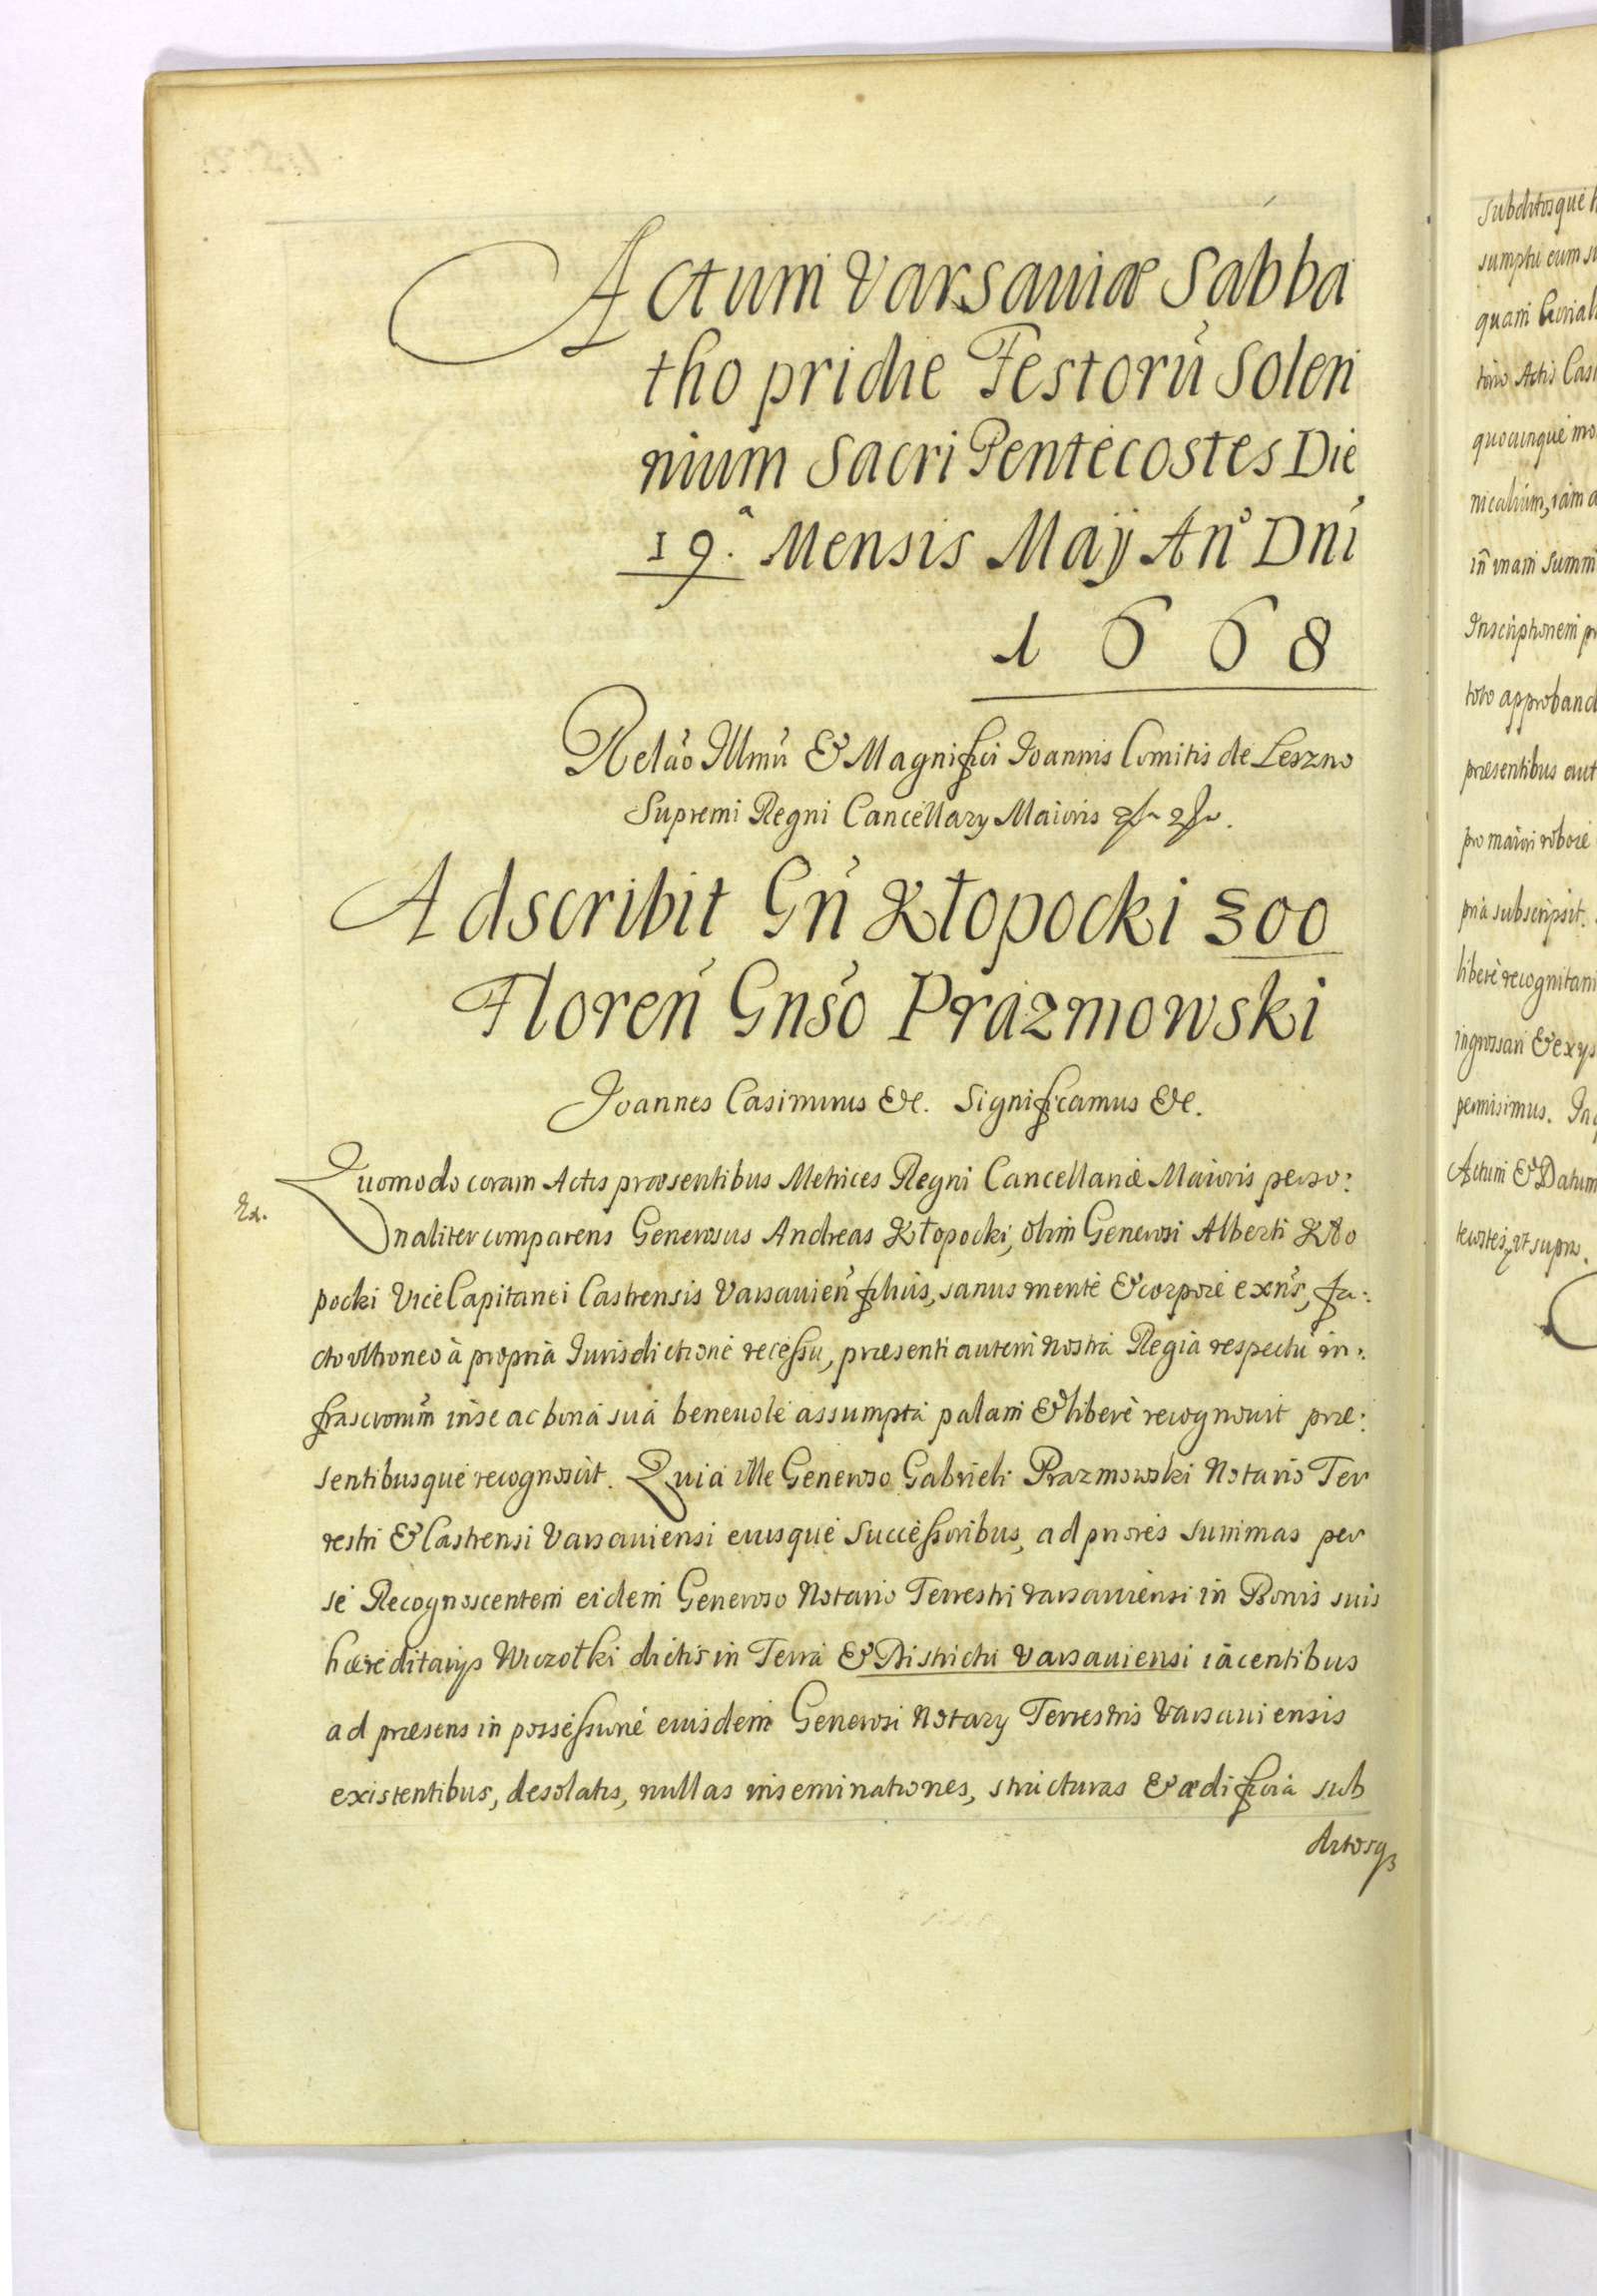 Actum Varsaviæ Sabba
tho pridie Festorũ Solen
nium Sacri Pentecostes Die
19.ª Mensis Maÿ Anº Dni
1668
Relão Illmi & Magnifici Ioannis Comitis de Leszno
Supremi Regni Cancellary Maioris
Adscribit Gñ Kłopocki 300
Floreñ Gnšo Prazmowski
Ioannes Casimirus &c. Significamus &c.
Quomodo coram Actis præsentibus Metrices Regni Cancellariæ Maioris perso:
naliter comparens Generosus Andreas Kłopocki, olim Generosi Alberti Kło
pocki Vice Capitanei Castrensis Varsavieñ filius, sanus mente & corpore exñs, fa:
cto ultroneo à proprià Iurisdictione recessu, præsenti autem nostrà Regià respectu in:
frascrorum in se ac bona sua benevole assumptà palam & liberè recognovit præ:
sentibusque recognoscit. Quia ille Generoso Gabrieli Prazmowski Notario Ter
restri & Castrensi Varsaviensi eiusque Successoribus, ad priores summas per
se Recognoscentem eidem Generoso Notario Terrestri Varsaviensi in Bonis suis
hæreditarijs Wiczołki dictis in Terra & Districtu Varsaviensi iacentibus
ad præsens in possessione eiusdem Generosi Notary Terrestris Varsaviensis
existentibus, desolatis, nullas inseminationes, structuras & ædificia sub
ditosq3
Subditosque
sumptu eum su
quam
Actis Cas
quocunque mo
summ
Inscriptionem pr
toto approband
præsentibus aut
pro maiori robore
pria subscripsit.
libere recognitam
ingrossari & ex
permisimus. In
Actum & Datum
ut supra.